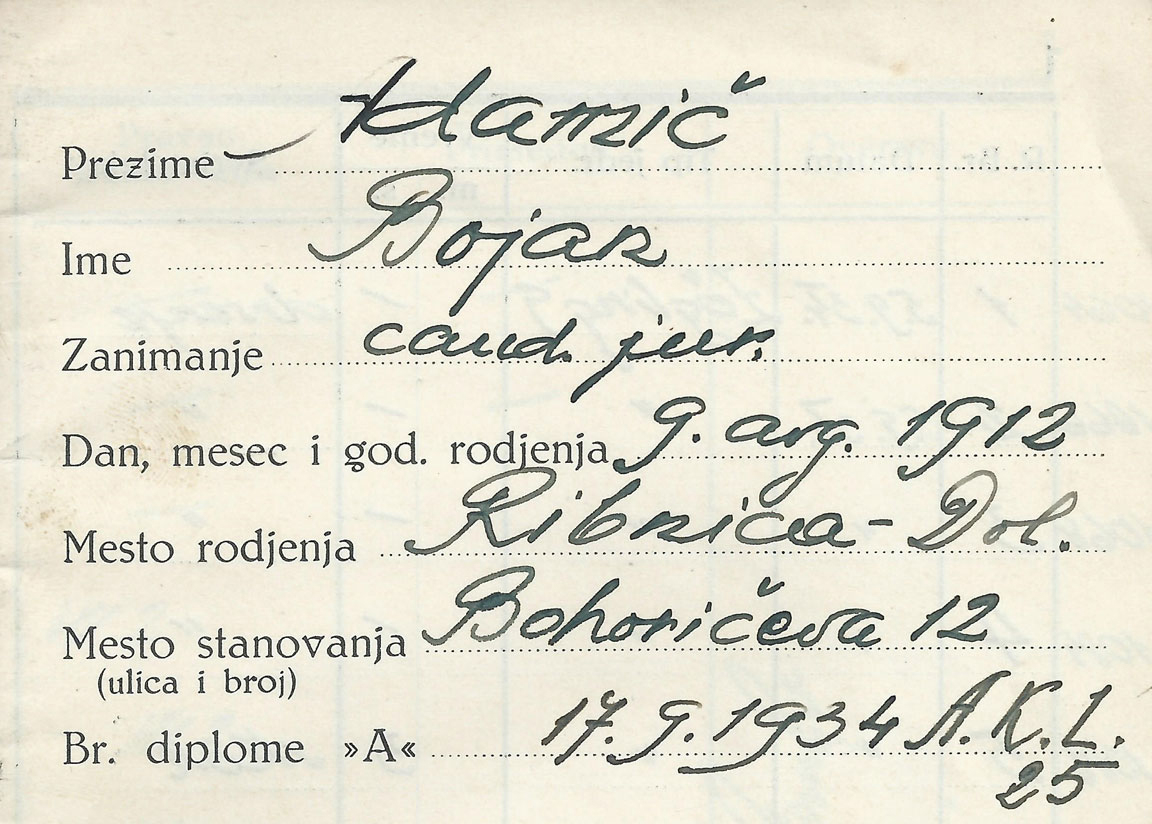 Prezime Adamič
Ime Bojan
Zanimanje cand. jur.
Dan, mesec i god. rodjenja 9. avg. 1912
Mesto rodjenja Ribnica - Dol.
Mesto stanovanja Bohoričeva 12
(ulica i broj)
Br. diplome »A« 17. 9. 1934 A.K.L.
25